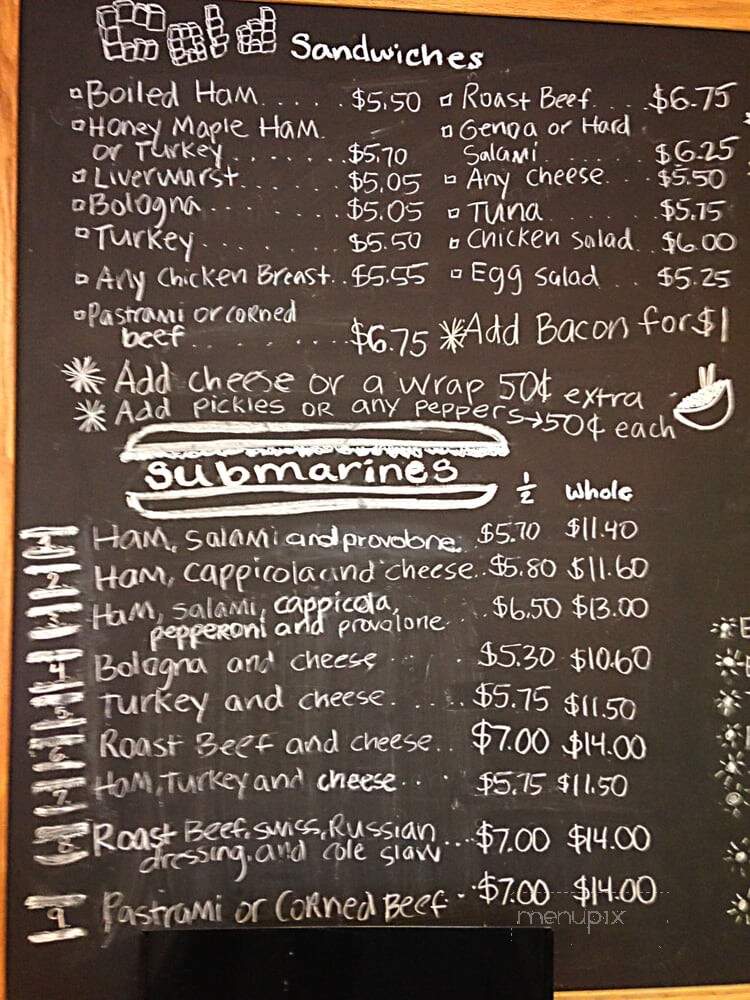 Cold Sandwiches
Boiled Ham..... $5.50
Honey Maple Ham
or Turkey....... $5.70
Liverwurst....... $5.05
Bologna....... $5.05
Turkey....... $5.50
Any Chicken Breast.. $5.55
Pastrami or corned
beef....... $6.75
Roast Beef.... $6.75
Genoa or Hard
Salami....... $6.25
Any cheese... $5.50
Tuna....... $5.75
Chicken salad.. $6.00
Egg salad... $5.25
*Add Bacon for $1
* Add cheese or a wrap 50¢ extra
* Add pickles or any peppers→50¢ each
submarines
½ whole
1 Ham, salami and provolone. $5.70 $11.40
2 Ham, cappicola and cheese.. $5.80 $11.60
3 Ham, salami, cappicola,
pepperoni and provolone... $6.50 $13.00
4 Bologna and cheese.... $5.30 $10.60
5 Turkey and cheese..... $5.75 $11.50
6 Roast Beef and cheese.. $7.00 $14.00
7 Ham, Turkey and cheese... $5.75 $11.50
8 Roast Beef, swiss, Russian
dressing, and cole slaw ... $7.00 $14.00
9 Pastrami or Corned Beef.. $7.00 $14.00
menupix